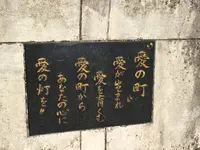 〝愛の町〟
愛が生まれ
愛を育くむ
愛の町から
あなたの心に
愛の灯を〟